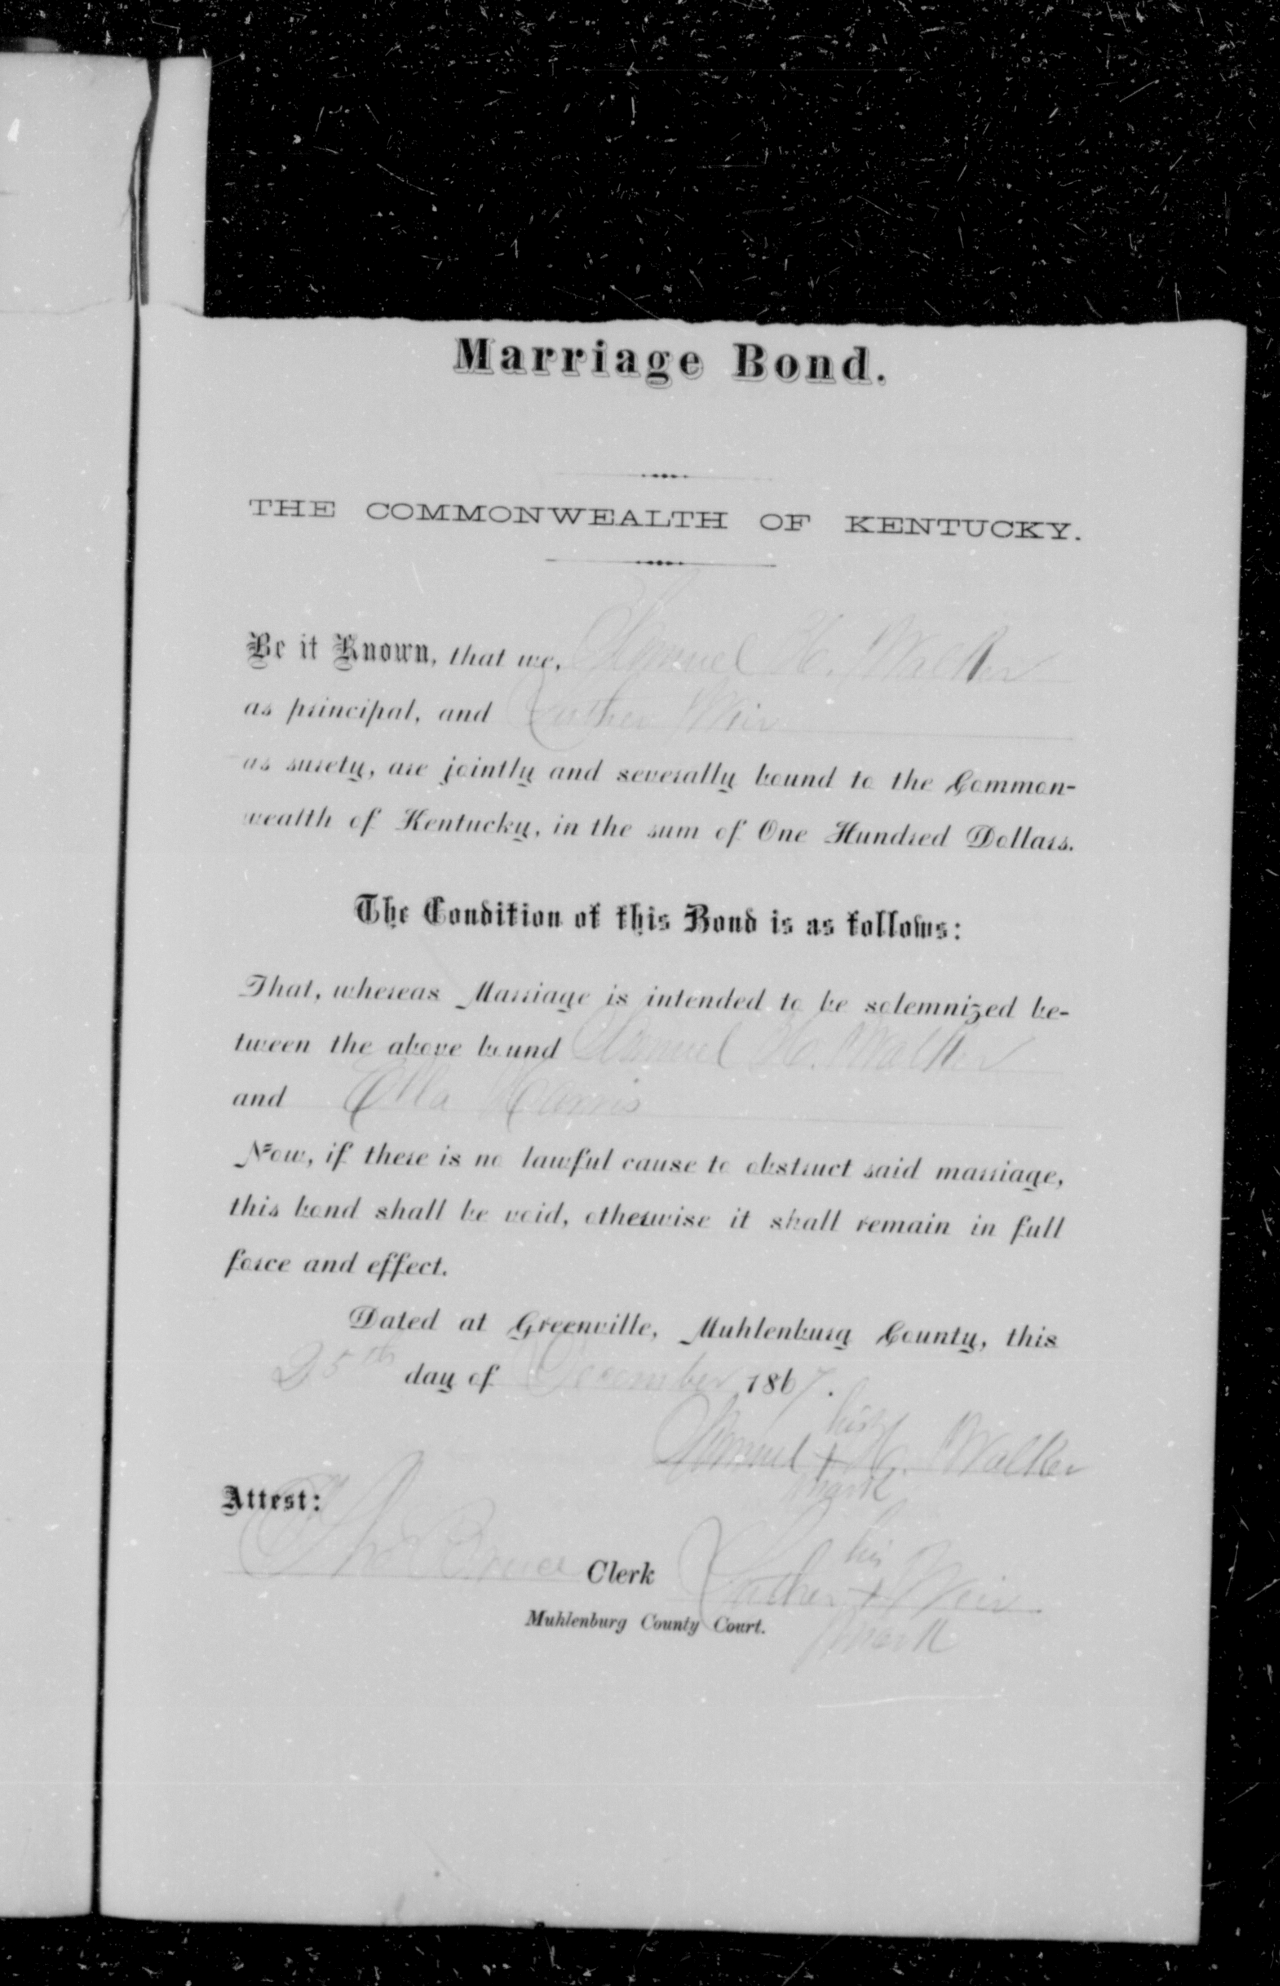 Marriage Bond.
THE COMMONWEALTH OF KENTUCKY.
Be it Known, that we, Samuel H. Walker
as principal, and Luther Weir
as surety, are jointly and severally bound to the Common-
wealth of Kentucky, in the sum of One Hundred Dollars.
The Condition of this Bond is as follows:
That, whereas Marriage is intended to be solemnized be-
tween the above bound Samuel H. Walker
and Ella Harris
Now, if there is no lawful cause to obstruct said marriage,
this bond shall be void, otherwise it shall remain in full
force and effect.
Dated at Greenville, Muhlenburg County, this
25th day of December 1867.
his
Samuel + H. Walker
mark
Attest:
Tho Bruce Clerk
his
Luther + Weir
Muhlenburg County Court.
mark